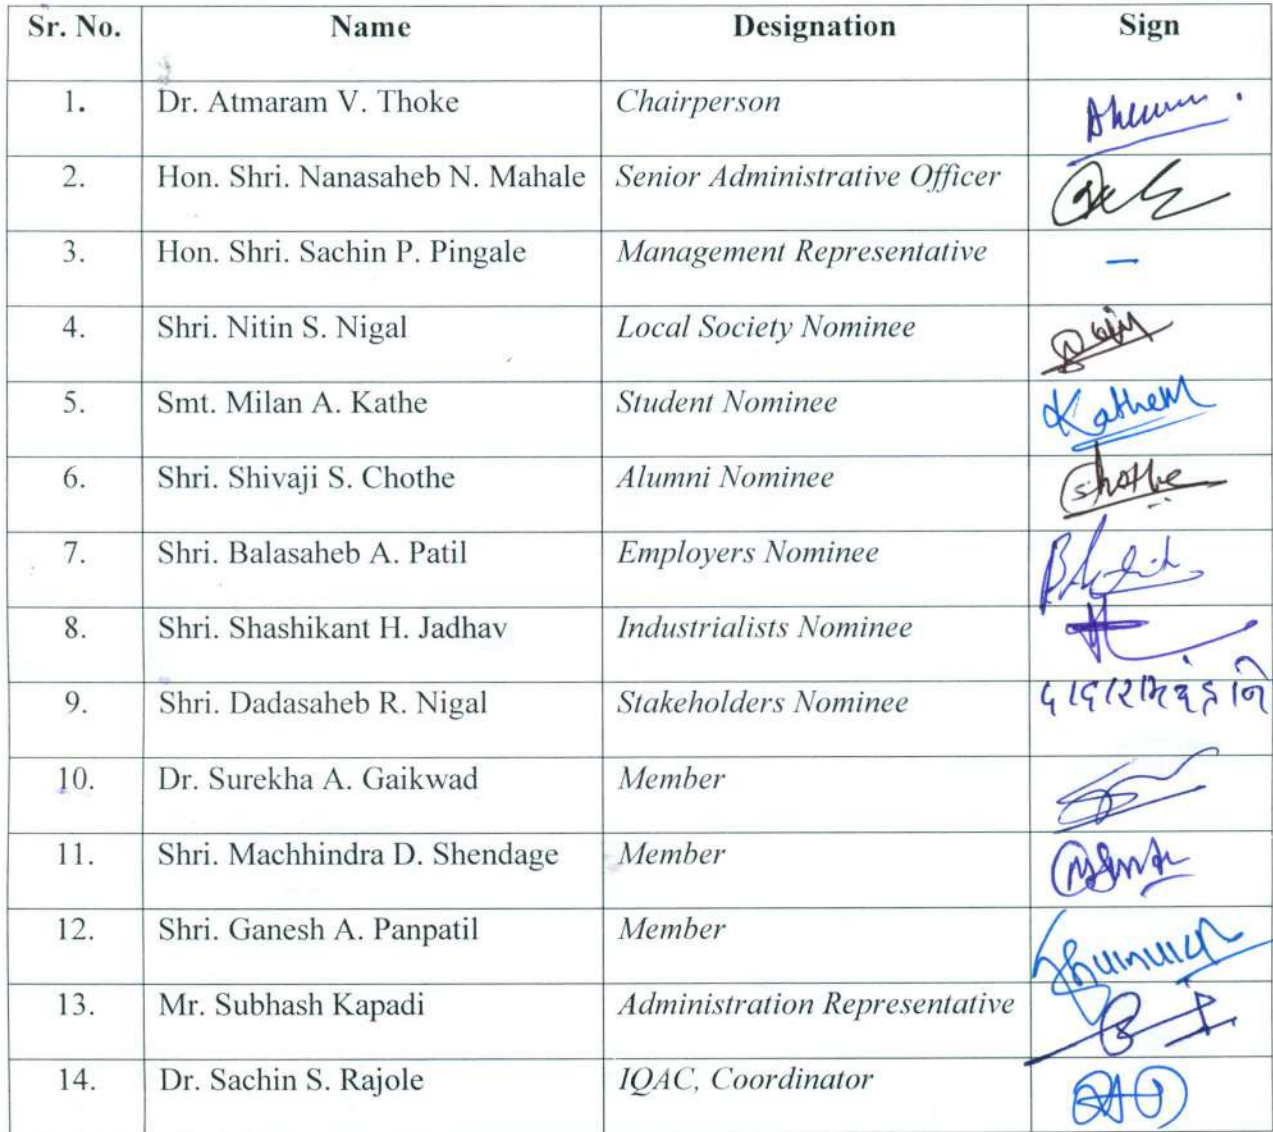 Sr. No. Name Designation Sign
1. Dr. Atmaram V. Thoke Chairperson
2. Hon. Shri. Nanasaheb N. Mahale Senior Administrative Officer
3. Hon. Shri. Sachin P. Pingale Management Representative —
4. Shri. Nitin S. Nigal Local Society Nominee
5. Smt. Milan A. Kathe Student Nominee KatheM
6. Shri. Shivaji S. Chothe Alumni Nominee Shothe
7. Shri. Balasaheb A. Patil Employers Nominee
8. Shri. Shashikant H. Jadhav Industrialists Nominee
9. Shri. Dadasaheb R. Nigal Stakeholders Nominee
10. Dr. Surekha A. Gaikwad Member
11. Shri. Machhindra D. Shendage Member
12. Shri. Ganesh A. Panpatil Member
13. Mr. Subhash Kapadi Administration Representative
14. Dr. Sachin S. Rajole IQAC, Coordinator